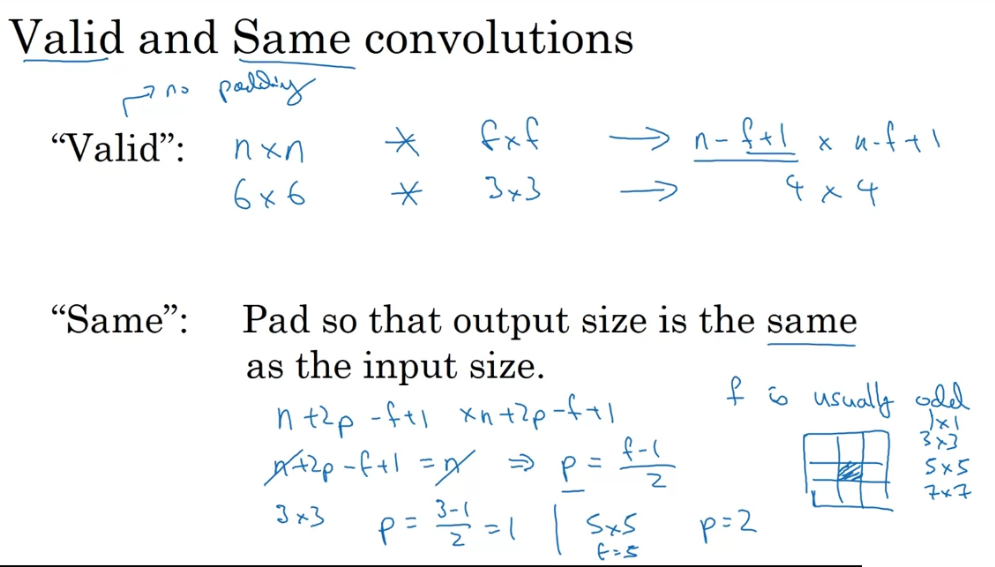 Valid and Same convolutions
→ no padding
“Valid”: n×n * f×f → n-f+1 × n-f+1
6×6 * 3×3 → 4 × 4
“Same”: Pad so that output size is the same
as the input size.
n+2p-f+1 ×n+2p-f+1
n+2p-f+1 = n ⇒ p = f-1/2
3×3 p = 3-1/2 = 1 | 5×5 f=5 p=2
f is usually odd
1×1
3×3
5×5
7×7